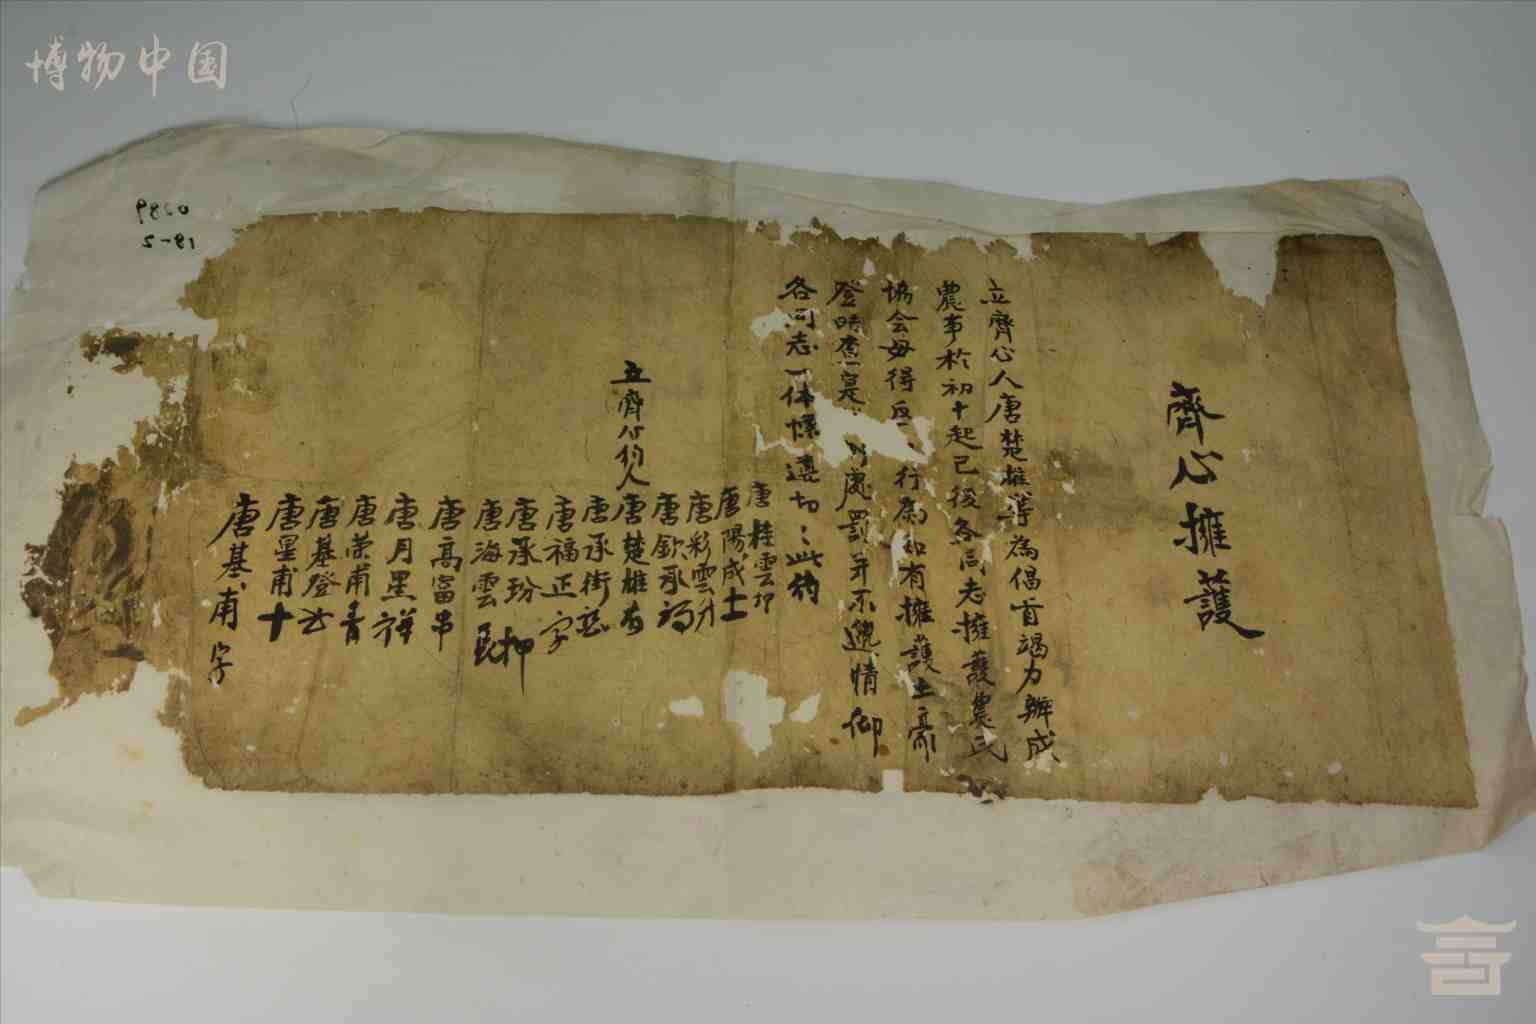 博物中国
0289
18-2
齊心擁護
立齊心人唐楚雄等為倡首竭力辦成
農事於初十起已後各同志擁護農民
協会毋得反行為如有擁護土豪
登時查寔處罰并不徇情仰
各同志一体懍遵切〻此約
立齊心約人
唐桂雲押
唐陽成士
唐彩雲升
唐欽承
唐楚雄
唐承街
唐福正字
唐承玢押
唐海雲
唐高富串
唐月星祥
唐荣甫青
唐基登
唐星甫十
唐基甫字